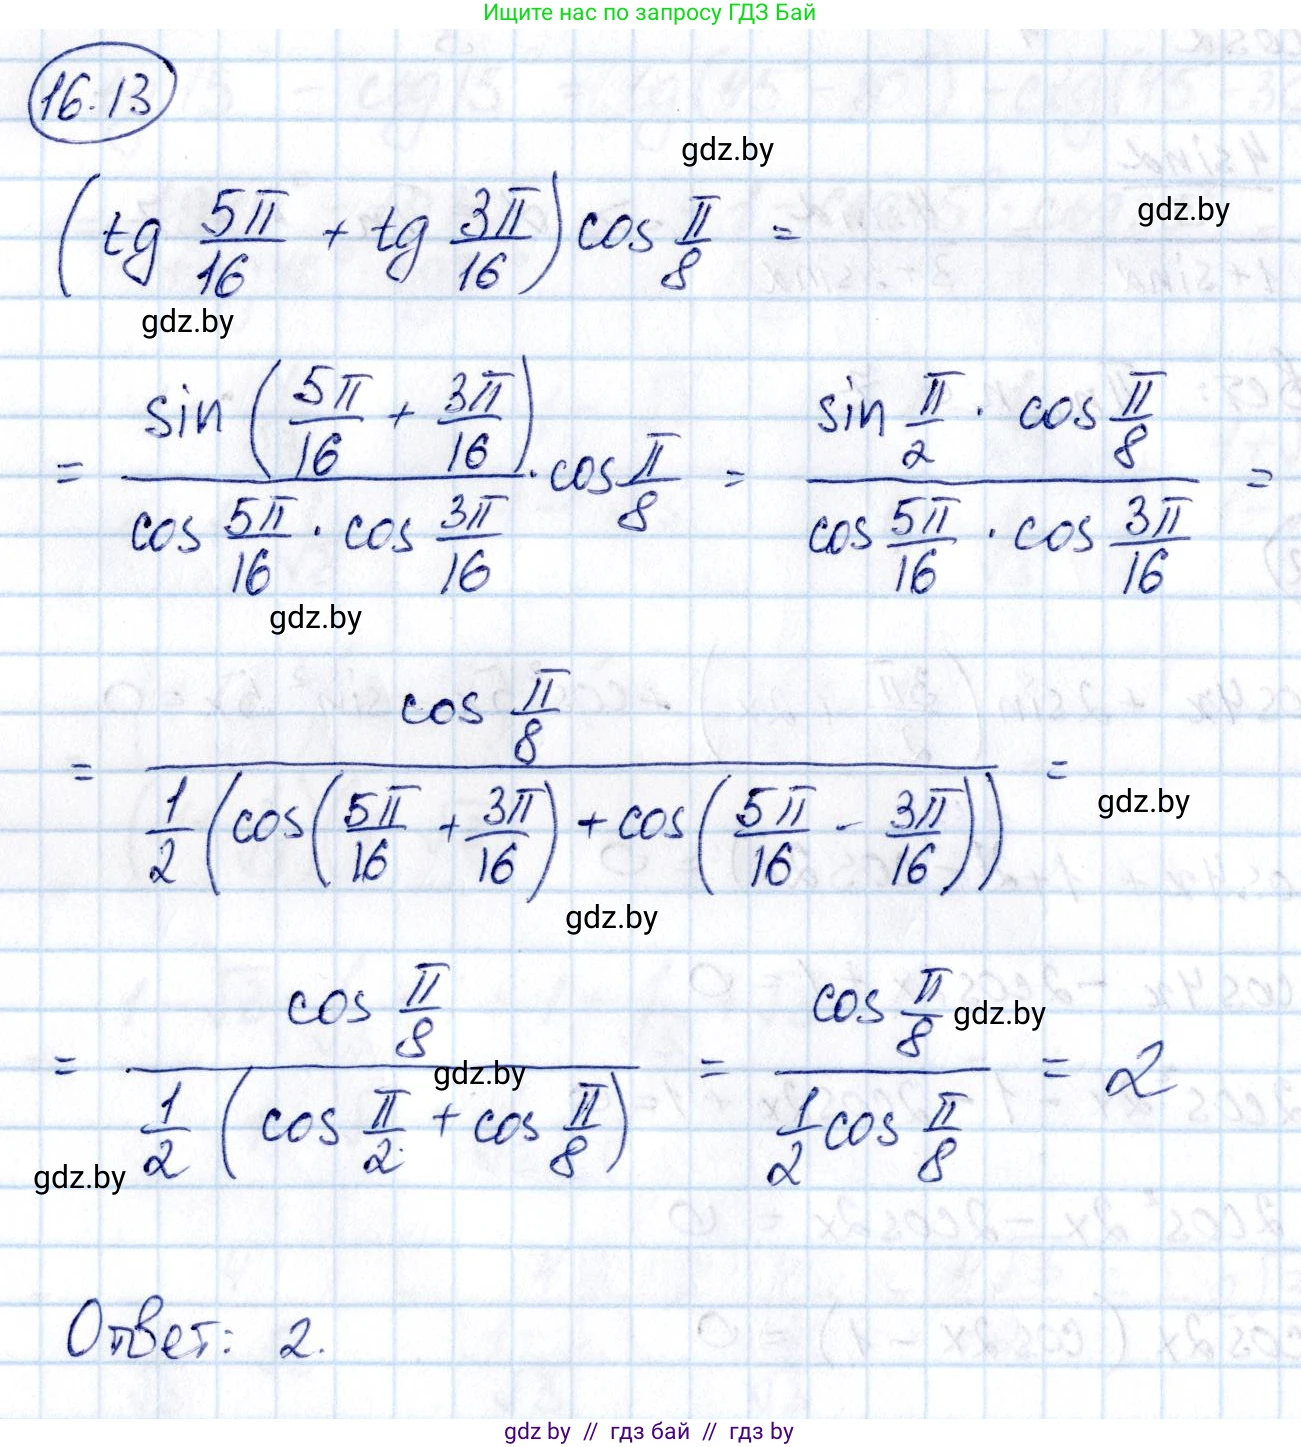 Ищите нас по запросу ГДЗ Бай
16.13
gdz.by
gdz.by
(tg 5π/16 + tg 3π/16) cos π/8 =
gdz.by
= sin(5π/16 + 3π/16) / (cos 5π/16 · cos 3π/16) · cos π/8 = (sin π/2 · cos π/8) / (cos 5π/16 · cos 3π/16) =
gdz.by
= cos π/8 / (1/2 (cos(5π/16 + 3π/16) + cos(5π/16 - 3π/16))) =
gdz.by
gdz.by
= cos π/8 / (1/2 (cos π/2 + cos π/8)) = cos π/8 / (1/2 cos π/8) = 2
gdz.by
gdz.by
gdz.by
Ответ: 2.
gdz.by // гдз бай // гдз by